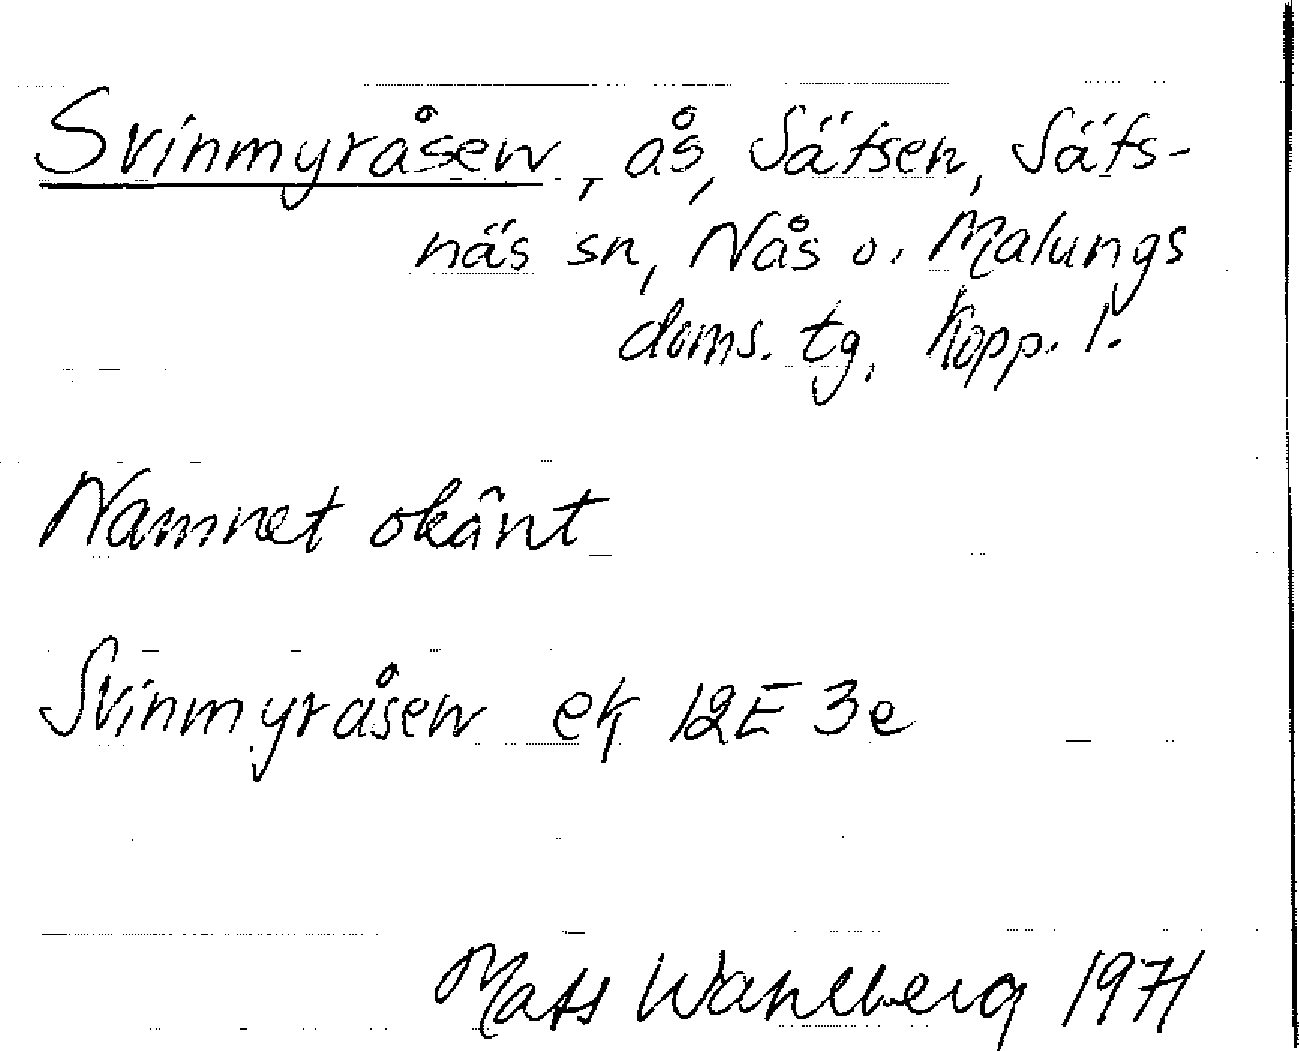 Svinmyråsen, ås, Säfsen, Säfs-
näs sn, Nås o. Malungs
doms. tg, Kopp. l.
Namnet okänt
Svinmyråsen ek 12E 3e
Mats Wahlberg 1971